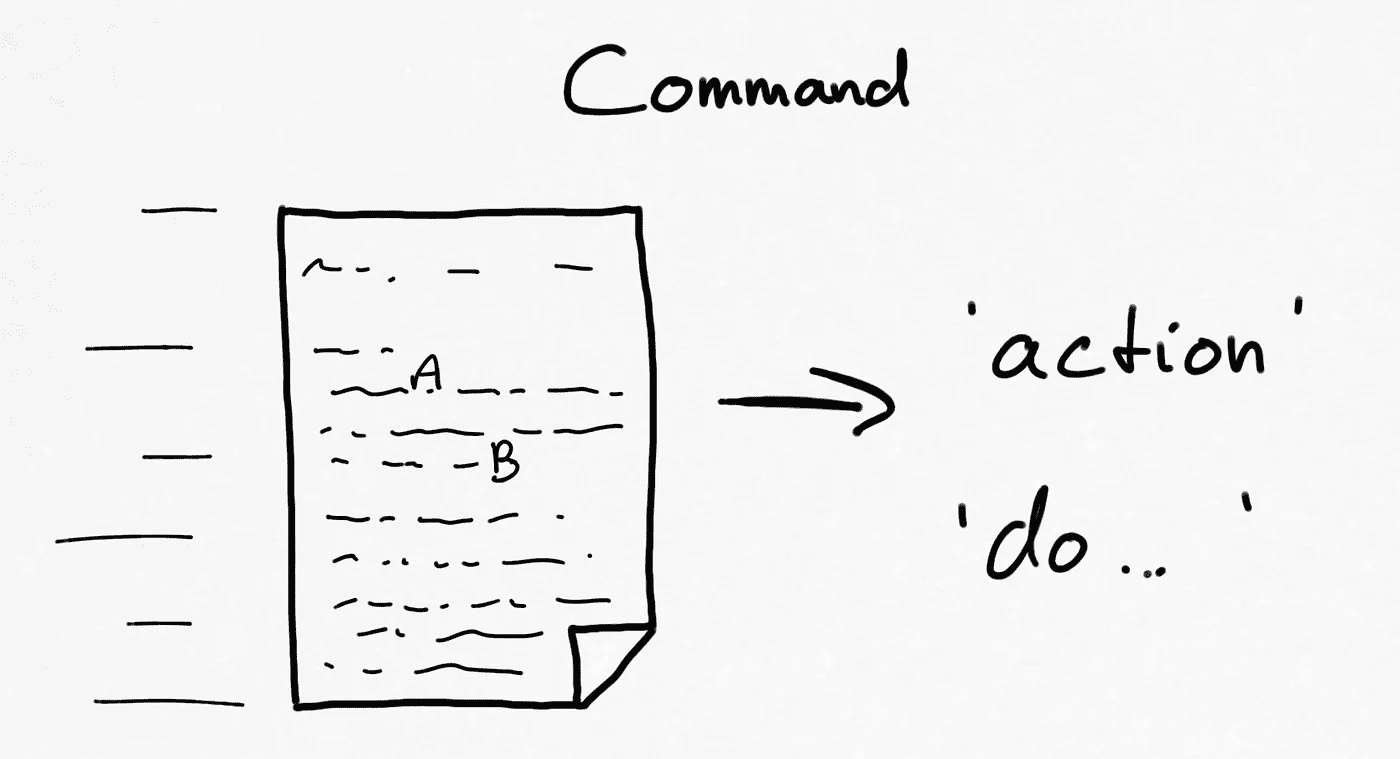 Command
A
B
'action'
'do ... '